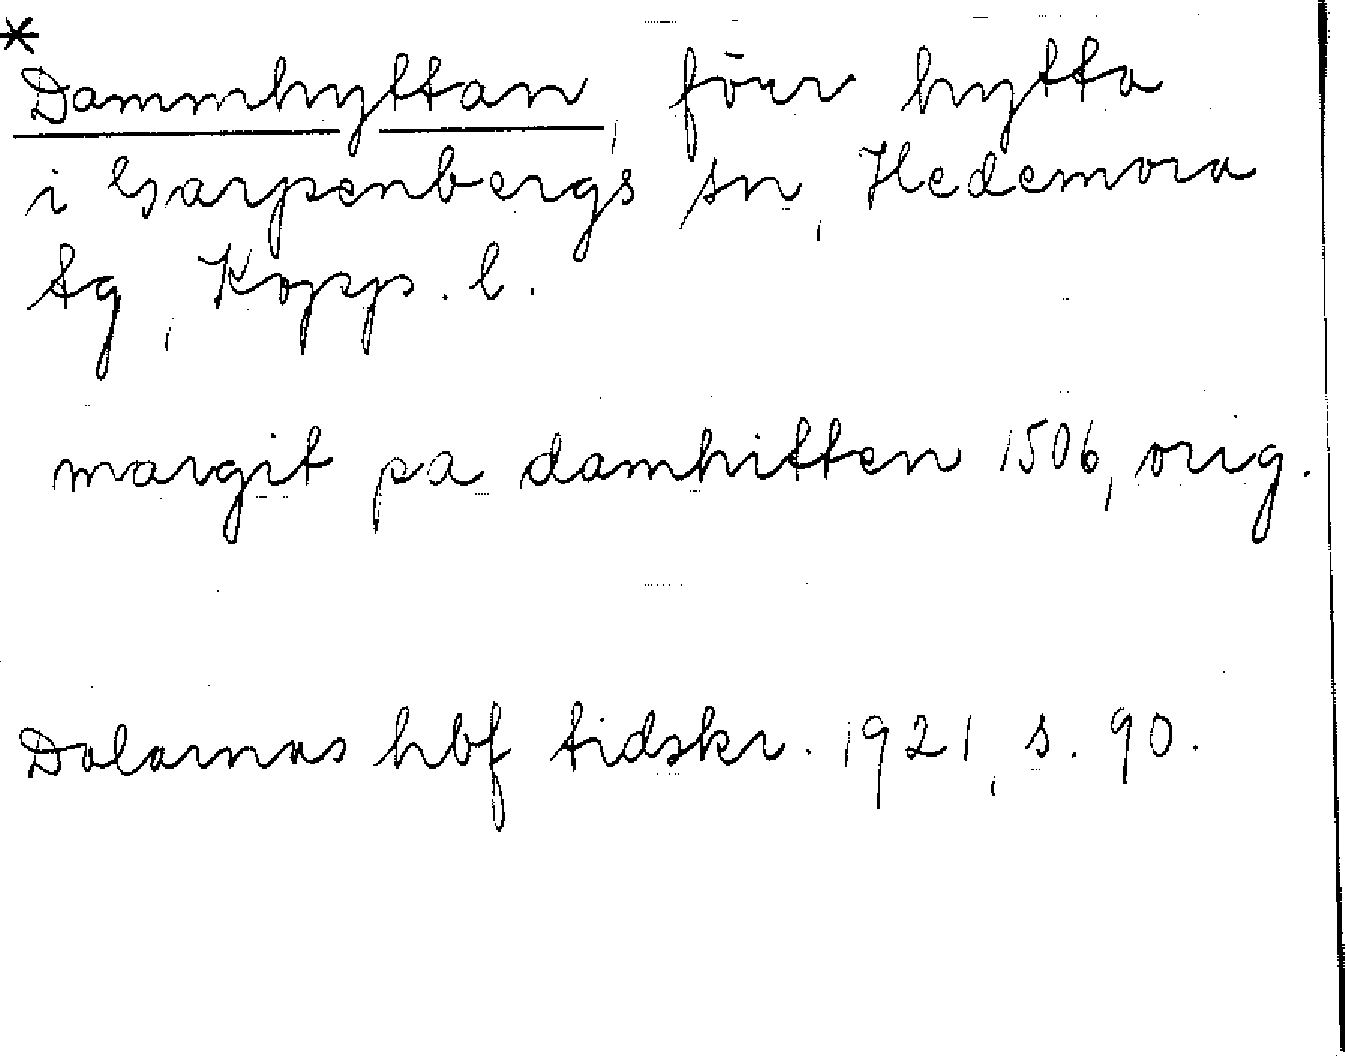 *
Dammhyttan, förr hytta
i Garpenbergs sn, Hedemora
tg, Kopp. l.
margit pa damhitten 1506, orig.
Dalarnas hbf tidskr. 1921, s. 90.